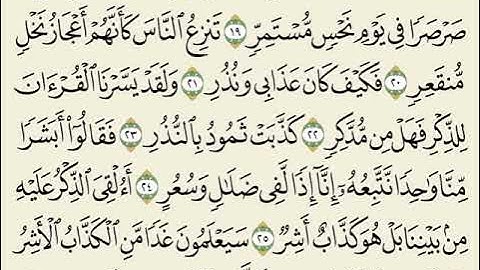 صَرْصَرًا فِي يَوْمِ نَحْسٍ مُّسْتَمِرٍّ ۝١٩ تَنزِعُ النَّاسَ كَأَنَّهُمْ أَعْجَازُ نَخْلٍ
مُّنقَعِرٍ ۝٢٠ فَكَيْفَ كَانَ عَذَابِي وَنُذُرِ ۝٢١ وَلَقَدْ يَسَّرْنَا الْقُرْءَانَ
لِلذِّكْرِ فَهَلْ مِن مُّدَّكِرٍ ۝٢٢ كَذَّبَتْ ثَمُودُ بِالنُّذُرِ ۝٢٣ فَقَالُوٓا۟ أَبَشَرًا
مِّنَّا وَٰحِدًا نَّتَّبِعُهُۥٓ إِنَّآ إِذًا لَّفِي ضَلَٰلٍ وَسُعُرٍ ۝٢٤ أَءُلْقِيَ الذِّكْرُ عَلَيْهِ
مِنۢ بَيْنِنَا بَلْ هُوَ كَذَّابٌ أَشِرٌ ۝٢٥ سَيَعْلَمُونَ غَدًا مَّنِ الْكَذَّابُ الْأَشِرُ